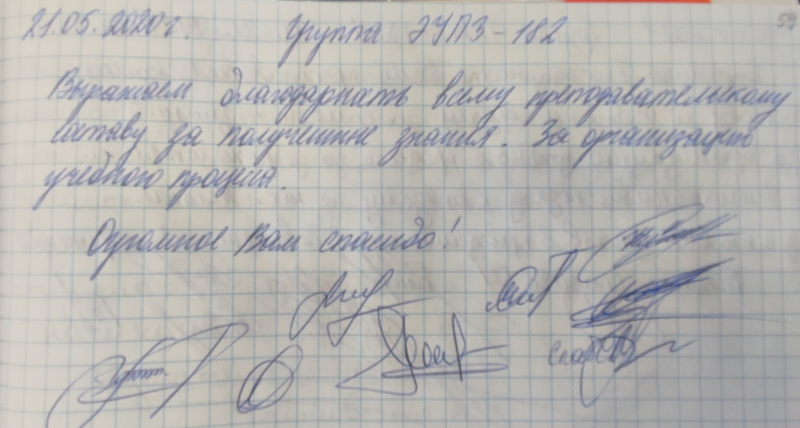 59
21.05.2020г. Группа ЭУПЗ-182
Выражаем благодарность всему преподавательскому
составу за полученные знания. За организацию
учебного процесса.
Огромное Вам спасибо!